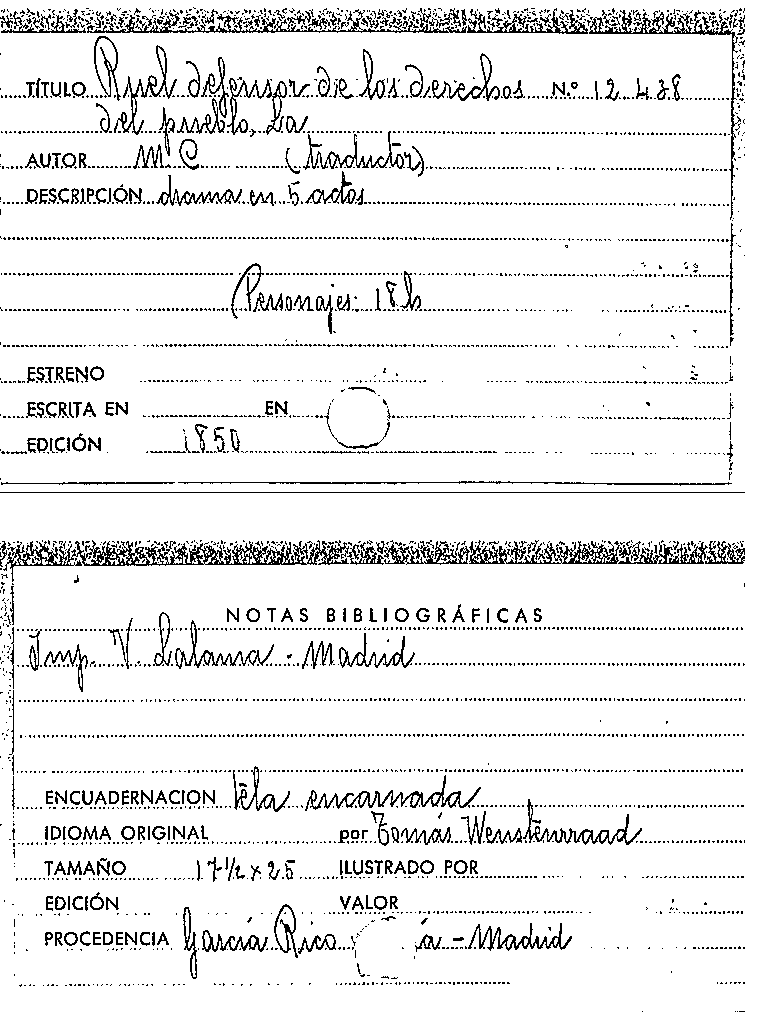 TÍTULO Ruel defensor de los derechos N.º 12.438
del pueblo, La
AUTOR M. C (traductor)
DESCRIPCIÓN drama en 5 actos
Personajes: 18 h
ESTRENO
ESCRITA EN EN
EDICIÓN 1850
NOTAS BIBLIOGRÁFICAS
Imp. V. Lalama - Madrid
ENCUADERNACION tela encarnada
IDIOMA ORIGINAL por Tomás
TAMAÑO 17 1/2 x 25 ILUSTRADO POR
EDICIÓN VALOR
PROCEDENCIA García Rico y - Madrid